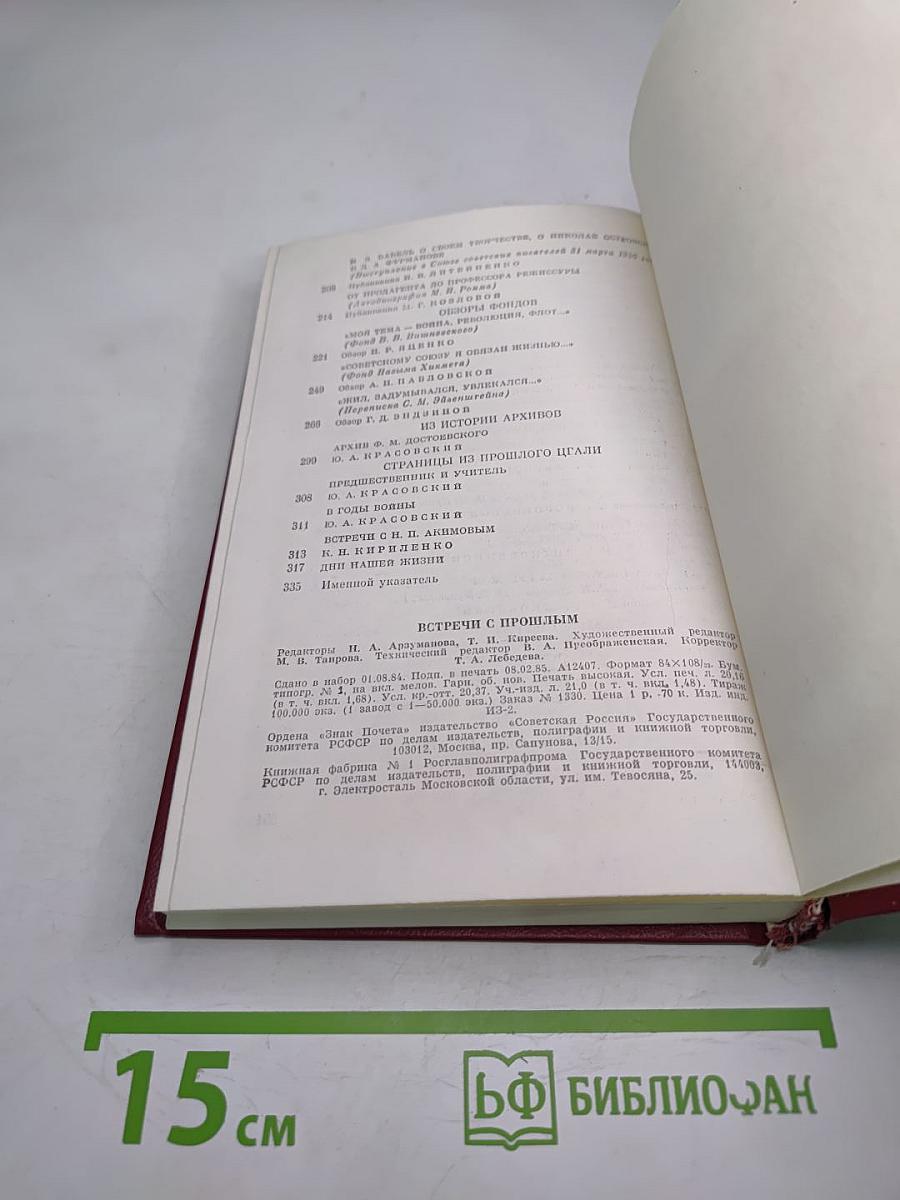 И. Э. БАБЕЛЬ О СВОЕМ ТВОРЧЕСТВЕ, О НИКОЛАЕ ОСТРОВСКОМ
И Д. А. ФУРМАНОВЕ
(Выступление в Союзе советских писателей 31 марта
208 Публикация
ОТ ПРОДАГЕНТА ДО ПРОФЕССОРА РЕЖИССУРЫ
(Автобиография М. И. Ромма)
214 Публикация М. Г. КОЗЛОВОЙ
ОБЗОРЫ ФОНДОВ
«МОЯ ТЕМА — ВОЙНА, РЕВОЛЮЦИЯ, ФЛОТ...»
(Фонд В. В. Вишневского)
221 Обзор И. Р. ЯЦЕНКО
«СОВЕТСКОМУ СОЮЗУ Я ОБЯЗАН ЖИЗНЬЮ...»
(Фонд Назыма Хикмета)
249 Обзор А. И. ПАВЛОВСКОЙ
«ЖИЛ, ЗАДУМЫВАЛСЯ, УВЛЕКАЛСЯ...»
(Переписка С. М. Эйзенштейна)
266 Обзор Г. Д. ЭНДЗИНОЙ
ИЗ ИСТОРИИ АРХИВОВ
АРХИВ Ф. М. ДОСТОЕВСКОГО
299 Ю. А. КРАСОВСКИЙ
СТРАНИЦЫ ИЗ ПРОШЛОГО ЦГАЛИ
ПРЕДШЕСТВЕННИК И УЧИТЕЛЬ
308 Ю. А. КРАСОВСКИЙ
В ГОДЫ ВОЙНЫ
311 Ю. А. КРАСОВСКИЙ
ВСТРЕЧИ С Н. П. АКИМОВЫМ
313 К. Н. КИРИЛЕНКО
317 ДНИ НАШЕЙ ЖИЗНИ
335 Именной указатель
ВСТРЕЧИ С ПРОШЛЫМ
Редакторы Н. А. Арзуманова, Т. И. Киреева. Художественный редактор
М. В. Таирова. Технический редактор В. А. Преображенская. Корректор
Т. А. Лебедева.
Сдано в набор 01.08.84. Подп. в печать 08.02.85. А12407. Формат 84×108/32. Бум.
типогр. № 1, на вкл. мелов. Гарн. об. нов. Печать высокая. Усл. печ. л. 20,16
(в т. ч. вкл. 1,68). Усл. кр.-отт. 20,37. Уч.-изд. л. 21,0 (в т. ч. вкл. 1,48). Тираж
100.000 экз. (1 завод с 1—50.000 экз.) Заказ № 1330. Цена 1 р. 70 к. Изд. инд.
ИЗ-2.
Ордена «Знак Почета» издательство «Советская Россия» Государственного
комитета РСФСР по делам издательств, полиграфии и книжной торговли,
103012, Москва, пр. Сапунова, 13/15.
Книжная фабрика № 1 Росглавполиграфпрома Государственного комитета
РСФСР по делам издательств, полиграфии и книжной торговли, 144003,
г. Электросталь Московской области, ул. им. Тевосяна, 25.
15 см
БФ БИБЛИОФАН